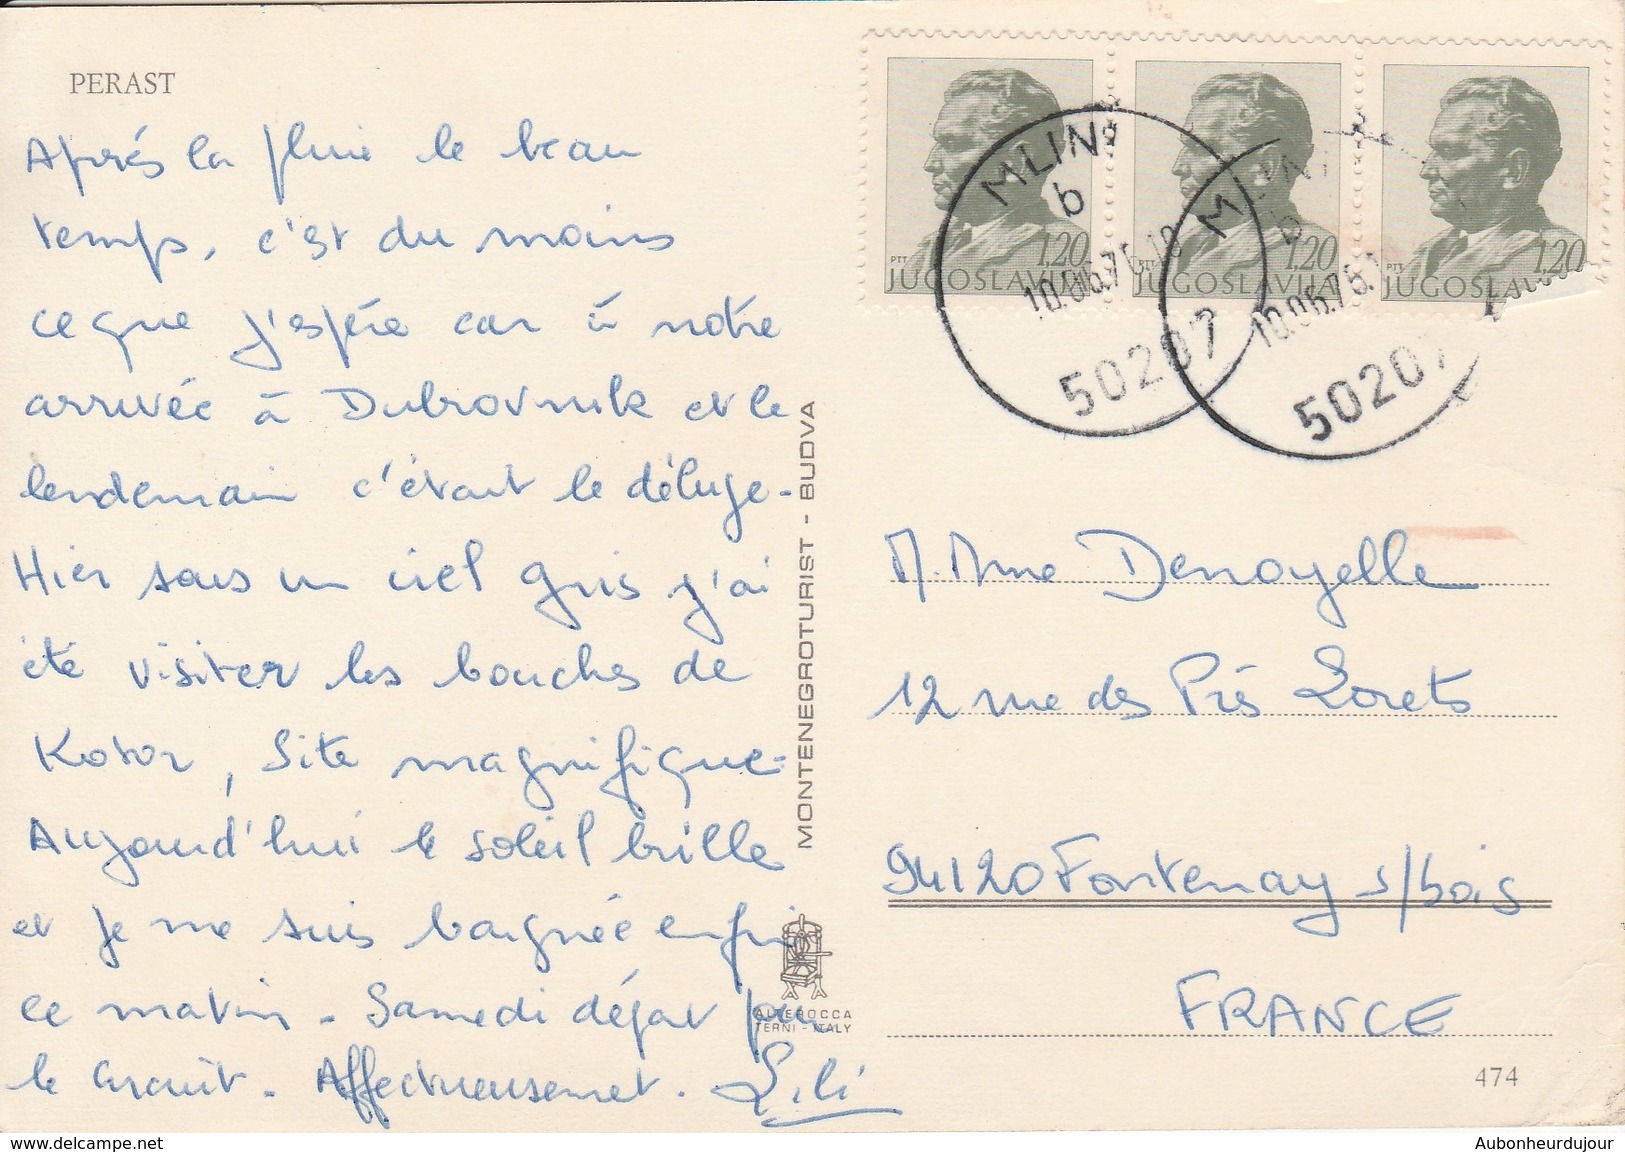 PERAST
Après la pluie le beau
temps, c'est du moins
ce que j'espère car à notre
arrivée à Dubrovnik et le
lendemain c'était le déluge -
Hier sous un ciel gris j'ai
été visiter les bouches de
Kotor, Site magnifique -
Aujourd'hui le soleil brille
et je me suis baignée enfin
ce matin - Samedi départ pour
le circuit - Affectueusement. Lili
MONTENEGROTURIST - BUDVA
ALTEROCCA
TERNI - ITALY
PTT 1,20
JUGOSLAVIJA
PTT 1,20
JUGOSLAVIJA
PTT 1,20
JUGOSLAVIJA
MLINI
b
10.06.76.18
50207
MLINI
b
10.06.76.
50207
M. Mme Denoyelle
12 rue des Prés Lorets
94120 Fontenay s/bois
FRANCE
474
www.delcampe.net
Aubonheurdujour